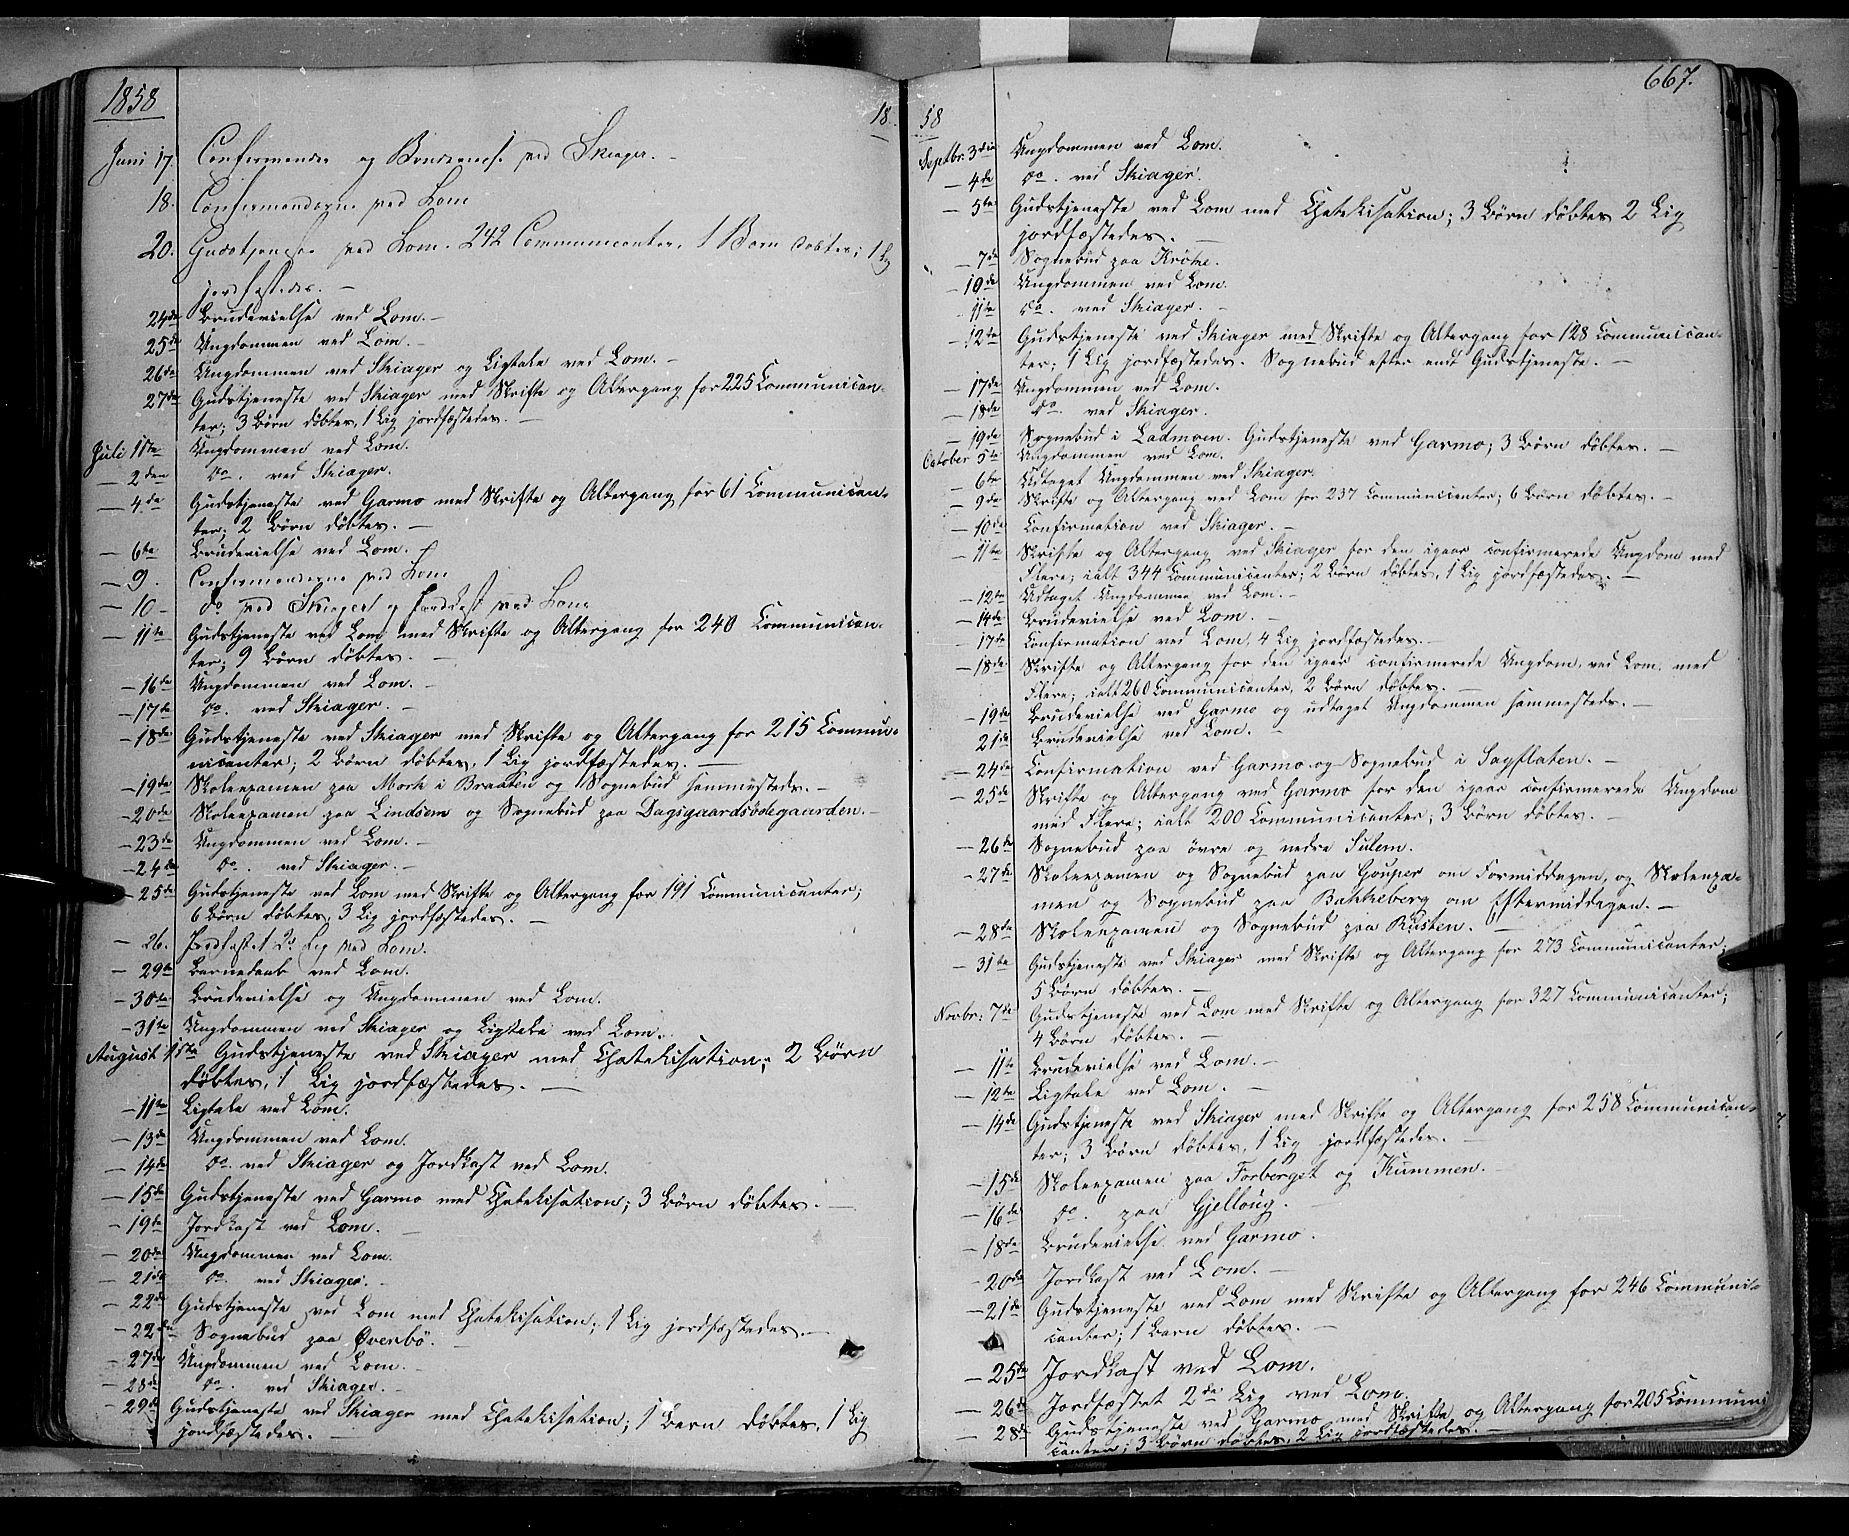 1858
18
Juni 17. Confirmander og Brudevielse ved Skiager. –
18. Confirmanderne ved Lom
20. Gudstjeneste ved Lom. 242 Communicanter, 1 Barn døbtes; 1 Lig
jordfæstedes. –
24de Brudevielse ved Lom. –
25de Ungdommen ved Lom. –
26de Ungdommen ved Skiager og Ligtale ved Lom. –
27de Gudstjeneste ved Skiager med Skrifte og Altergang for 225 Communican-
ter; 3 Børn døbtes, 1 Lig jordfæstedes. –
Juli 1ste Ungdommen ved Lom.
– 2den Do. ved Skiager.
– 4de Gudstjeneste ved Garmo med Skrifte og Altergang for 61 Communican-
ter; 2 Børn døbtes. –
– 6te Brudevielse ved Lom.
– 9. Confirmanderne ved Lom
– 10 – do ved Skiager og Jordkast ved Lom
– 11te Gudstjeneste ved Lom med Skrifte og Altergang for 240 Communican-
ter; 9 Børn døbtes. –
– 16de Ungdommen ved Lom. –
– 17de Do. ved Skiager. –
– 18de Gudstjeneste ved Skiager med Skrifte og Altergang for 215 Commu-
nicanter; 2 Børn døbtes, 1 Lig jordfæstedes. –
– 19de Skoleexamen paa Mork i Braaten og Sognebud sammesteds. –
– 20de Skoleexamen paa Lindsem og Sognebud paa Dagsgaardsødegaarden. –
– 23de Ungdommen ved Lom. –
– 24de Do. ved Skiager. –
– 25de Gudstjeneste ved Lom med Skrifte og Altergang for 191 Communicanter;
6 Børn døbtes, 3 Lig jordfæstedes. –
– 26. Jordfæstet 2de Lig ved Lom.
– 29de Barnedaab ved Lom.
– 30te Brudevielse og Ungdommen ved Lom.
– 31te Ungdommen ved Skiager og Ligtale ved Lom.
August 1ste Gudstjeneste ved Skiager med Chatekisation; 2 Børn
døbtes, 1 Lig jordfæstedes. –
– 11te Ligtale ved Lom.
– 13de Ungdommen ved Lom.
– 14de Do. ved Skiager og Jordkast ved Lom.
– 15de Gudstjeneste ved Garmo med Chatekisation; 3 Børn døbtes. –
– 19de Jordkast ved Lom. –
– 20de Ungdommen ved Lom.
– 21de Do. ved Skiager. –
– 22de Gudstjeneste ved Lom med Chatekisation; 1 Lig jordfæstedes. –
– 22de Sognebud paa Øverbø. –
– 27de Ungdommen ved Lom. –
– 28de Do. ved Skiager. –
– 29de Gudstjeneste ved Skiager med Chatekisation; 1 Barn døbtes, 1 Lig
jordfæstedes. –
58
667.
Septbr. 3die Ungdommen ved Lom.
– 4de Do. ved Skiager.
– 5te Gudstjeneste ved Lom med Chatekisation; 3 Børn døbtes 2 Lig
jordfæstedes. –
– 7de Sognebud paa Kroke.
– 10de Ungdommen ved Lom.
– 11te Do. ved Skiager. –
– 12te Gudstjeneste ved Skiager med Skrifte og Altergang for 128 Communican-
ter; 1 Lig jordfæstedes. Sognebud efter endt Gudstjeneste. –
– 17de Ungdommen ved Lom.
– 18de Do. ved Skiager.
– 19de Sognebud i Ladmoen. Gudstjeneste ved Garmo; 3 Børn døbtes. –
October 5te Ungdommen ved Lom.
– 6te Udtaget Ungdommen ved Skiager.
– 9de Skrifte og Altergang ved Lom for 237 Communicanter; 6 Børn døbtes. –
– 10de Confirmation ved Skiager. –
– 11te Skrifte og Altergang ved Skiager for den igaar confirmerede Ungdom med
Flere; ialt 344 Communicanter; 2 Børn døbtes, 1 Lig jordfæstedes. –
– 12te Udtaget Ungdommen ved Lom. –
– 14de Brudevielse ved Lom. –
– 17de Confirmation ved Lom, 4 Lig jordfæstedes. –
– 18de Skrifte og Altergang for den igaar confirmerede Ungdom, ved Lom, med
Flere; ialt 260 Communicanter, 2 Børn døbtes. –
– 19de Brudevielse ved Garmo og udtaget Ungdommen sammesteds. –
21de Brudevielse ved Lom. –
– 24de Confirmation ved Garmo og Sognebud i Sagflaten. –
– 25de Skrifte og Altergang ved Garmo for den igaar confirmerede Ungdom
med Flere; ialt 200 Communicanter; 3 Børn døbtes. –
– 26de Sognebud paa øvre og nedre Sulem.
– 27de Skoleexamen og Sognebud paa Gouper om Formiddagen, og Skoleexa-
men og Sognebud paa Bakkeberg om Eftermiddagen. –
– 28de Skoleexamen og Sognebud paa Rusten. –
– 31te Gudstjeneste ved Skiager med Skrifte og Altergang for 273 Communicanter;
5 Børn døbtes. –
Novbr: 7de Gudstjeneste ved Lom med Skrifte og Altergang for 327 Communicanter;
4 Børn døbtes. –
– 11te Brudevielse ved Lom. –
– 12te Ligtale ved Lom. –
– 14de Gudstjeneste ved Skiager med Skrifte og Altergang for 258 Communican-
ter; 3 Børn døbtes, 1 Lig jordfæstedes. –
– 15de Skoleexamen paa Forberget og Kummen. –
– 16de Do. paa Gjelloug. –
– 18de Brudevielse ved Garmo.
– 20de Jordkast ved Lom. –
– 21de Gudstjeneste ved Lom med Skrifte og Altergang for 246 Communi-
canter; 1 Barn døbtes. –
– 25de Jordkast ved Lom.
– 26de Jordfæstet 2de Lig ved Lom.
– 28de Gudstjeneste ved Garmo med Skrifte og Altergang for 205 Communi-
canter; 3 Børn døbtes, 2 Lig jordfæstedes. –